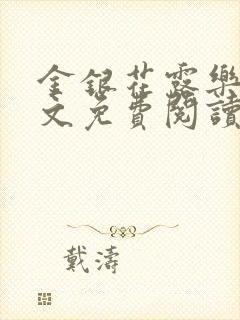 金銀花露樂
文免費閱讀
戴濤